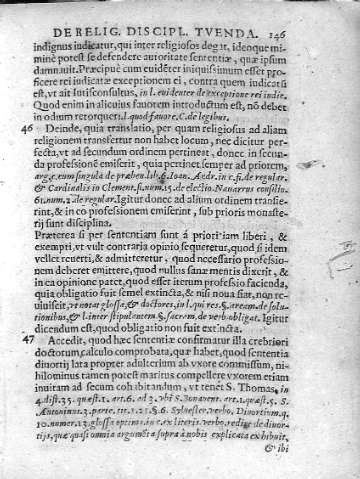 DE RELIG. DISCIPL. TVENDA. 146
indignus iudicatur, qui inter religiosos degit, ideoque mi-
nimè potest se defendere autoritate sententiæ, quæ ipsum
damnauit. Præcipuè cum euidẽter iniquissimum esset pro-
ficere rei iudicatæ exceptionem ei, contra quem iudicatũ
est, vt ait Iurisconsultus, in l. euidenter de exceptione rei iudic.
Quod enim in alicuius fauorem introductum est, nõ debet
in odium retorqueri. l. quod fauore. C. de legibus.
46 Deinde, quia translatio, per quam religiosus ad aliam
religionem transfertur non habet locum, nec dicitur per-
fecta, vt ad secundum ordinem pertineat, donec in secun-
da professionẽ emiserit, quia pertinet semper ad priorem,
arg. c. cum singula de præben. lib. 6. Ioan. And. in c. si. de regular.
& Cardinalis in Clement. 1. num. 15. de electio. Nauarrus consilio.
61. num. 2. de regular. Igitur donec ad alium ordinem transfie-
rint, & in eo professionem emiserint, sub prioris monaste-
rij sunt disciplina.
Præterea si per sententiam sunt à priori iam liberi, &
exempti, vt vult contraria opinio sequeretur, quod si idem
vellet reuerti, & admitteretur, quod necessario professio-
nem deberet emittere, quod nullus sanæ mentis dixerit, &
in ea opinione patet, quod esset iterum professio facienda,
quia obligatio fuit semel extincta, & nisi noua fiat, non re-
uiuiscit, vt notat glossa, & doctores, in l. qui res. §. aream. de solu-
tionibus, & l. inter stipulantem. §. sacram, de verb. obligat. Igitur
dicendum est, quod obligatio non fuit extincta.
47 Accedit, quod hæc sententia confirmatur illa crebriori
doctorum, calculo comprobata, quæ habet, quod sententia
diuortij lata propter adulterium ab vxore commissum, ni-
hilominus tamen potest maritus compellere vxorem etiam
inuitam ad secum cohabitandum, vt tenet S. Thomas, in
4. dist. 35. quæst. 1. art. 6. ad 3. vbi S. Bonauent. art. 1. quæst. 5. S.
Antoninus. 3. parte. tit. 1. c. 21. §. 6. Syluester. verbo. Diuortium. q.
10. numer. 13. glossa optima in c. ex literis. verbo, redige de diuor-
tijs, quæ quasi omnia argumẽta supra à nobis explicata exhibuit,
& ibi